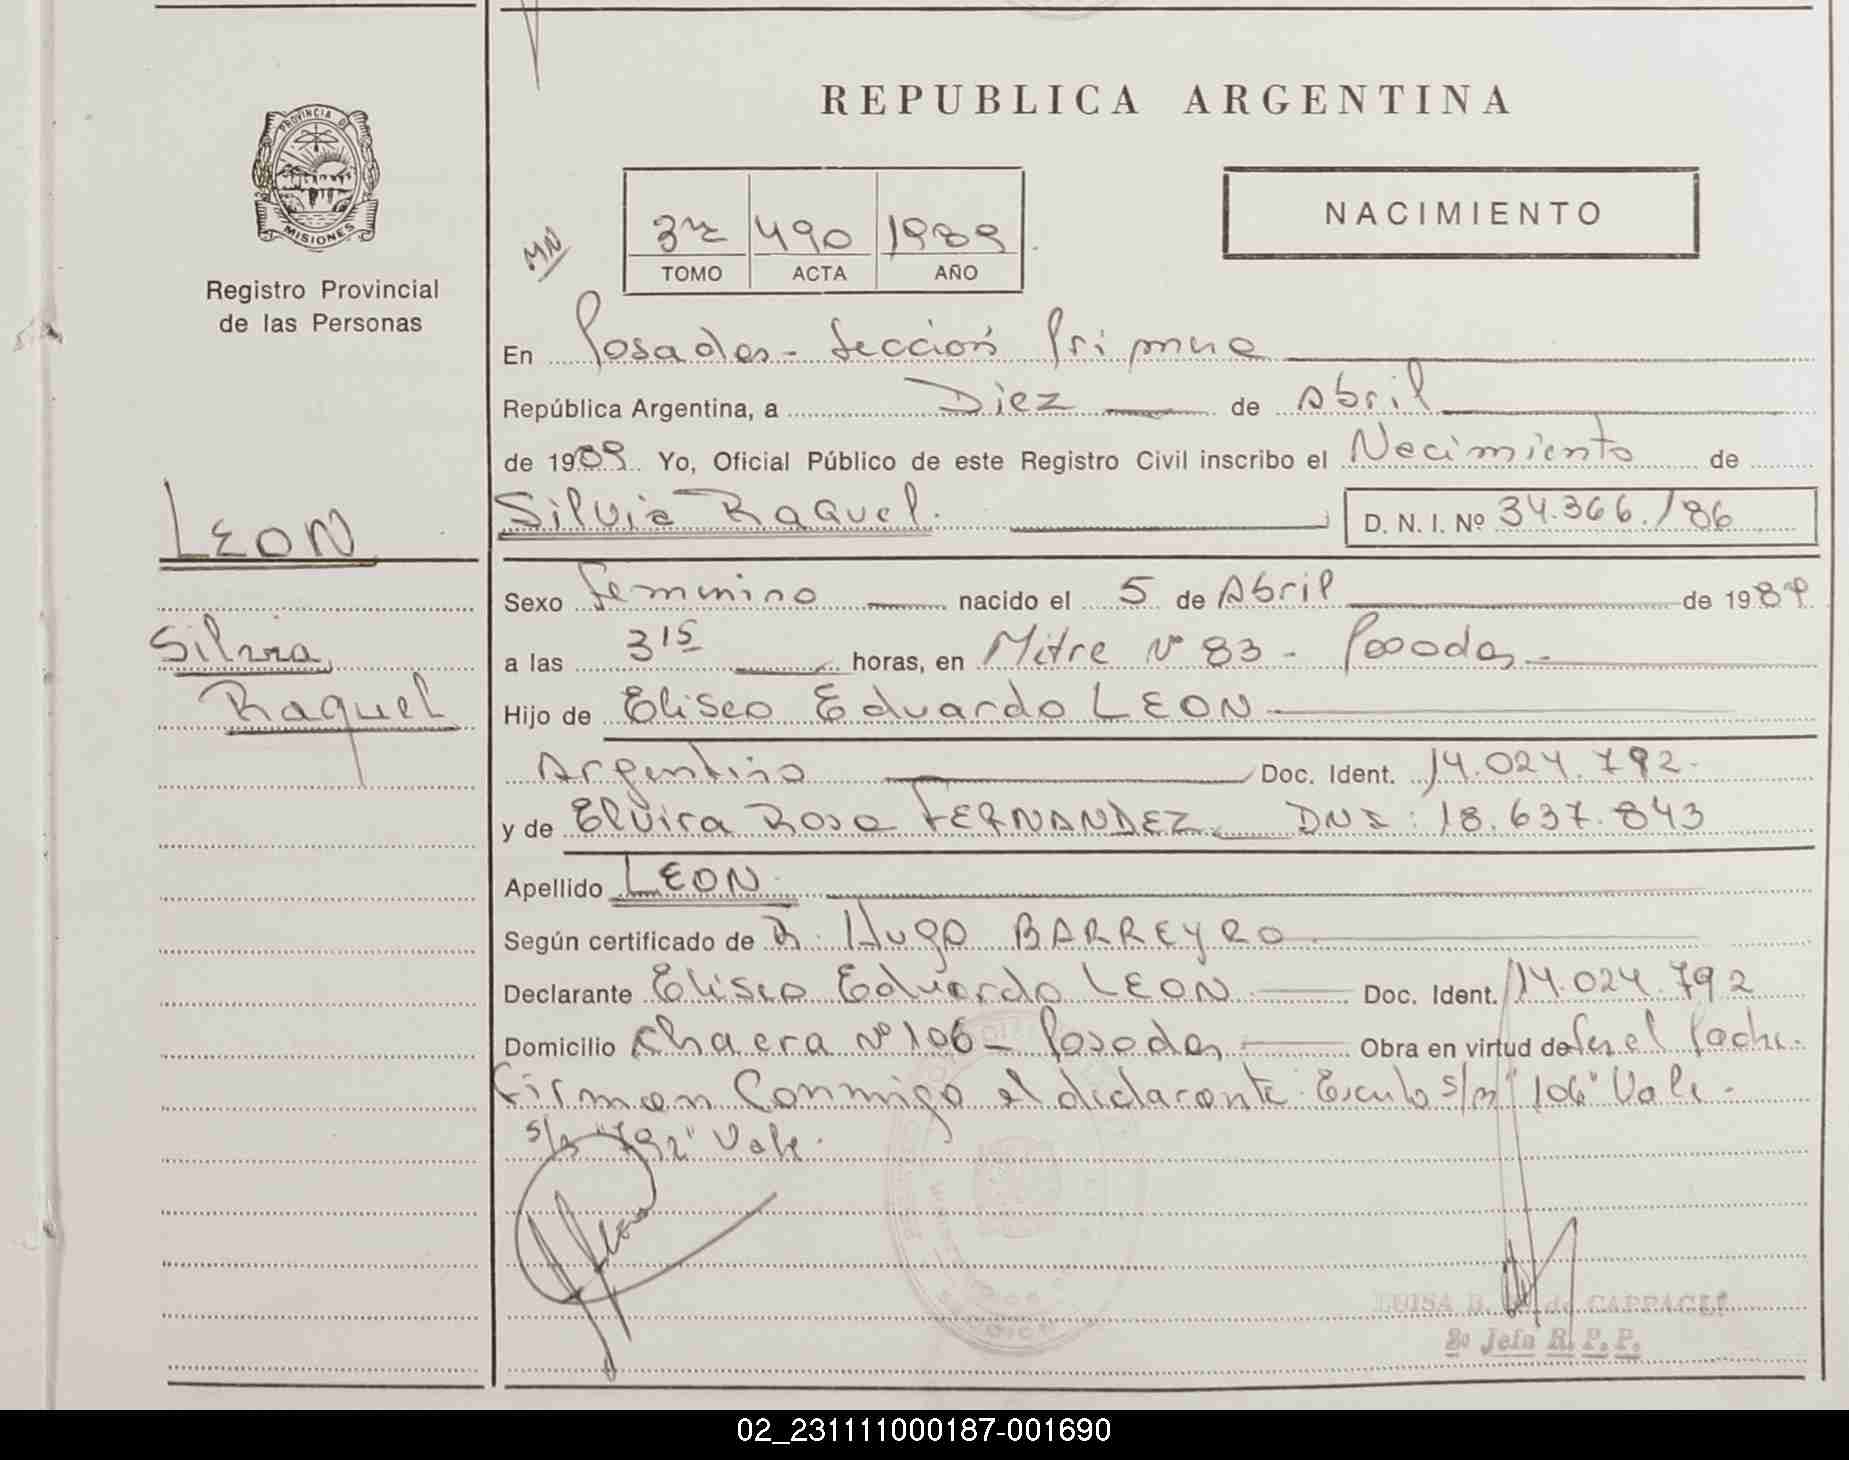 REPUBLICA ARGENTINA
PROVINCIA DE
MISIONES
Registro Provincial
de las Personas
NACIMIENTO
MN
3º 490 1989
TOMO ACTA AÑO
En Posadas - Sección Primera
República Argentina, a Diez de Abril
de 1989 Yo, Oficial Público de este Registro Civil inscribo el Nacimiento de
Silvia Raquel. D. N. I. Nº 34.366./86
LEON
Silvia
Raquel
Sexo Femenino nacido el 5 de Abril de 1989
a las 3 15 horas, en Mitre Nº 83 - Posadas -
Hijo de Eliseo Eduardo LEON
Argentino Doc. Ident. 14.024.792.
y de Elvira Rosa FERNANDEZ DNI: 18.637.843
Apellido LEON
Según certificado de Dr. Hugo BARREYRO
Declarante Eliseo Eduardo LEON Doc. Ident. 14.024.792
Domicilio Chacra Nº 106 - Posadas Obra en virtud de Ser el Padre.
Firman Conmigo el declarante. s/r "106" Vale.
s/r "792" Vale.
LUISA B. de
2º Jefa R. P. P.
02_231111000187-001690